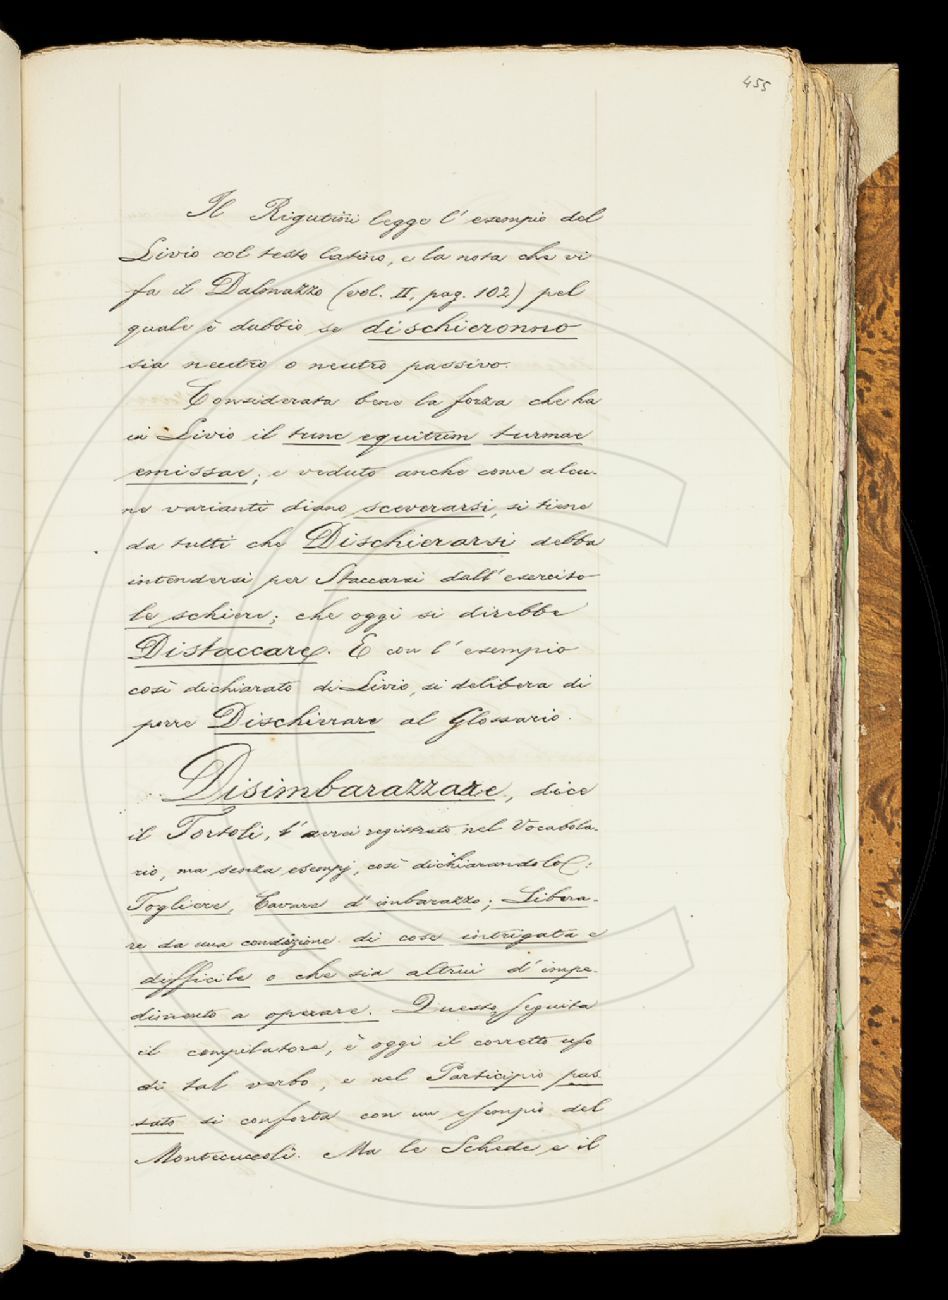 455
Il Rigutini legge l'esempio del
Livio col testo latino, e la nota che vi
fa il Dalmazzo (vol. II, pag. 102) pel
quale è dubbio se dischieronno
sia neutro o neutro passivo.
Considerata bene la forza che ha
in Livio il tunc equitum turmae
emissae; e veduto anche come alcu-
ne varianti diano sceverarsi, si tiene
da tutti che Dischierarsi debba
intendersi per Staccarsi dall'esercito
le schiere; che oggi si direbbe
Distaccare. E con l'esempio
così dichiarato di Livio, si delibera di
porre Dischierare al Glossario.
Disimbarazzare, dice
il Tortoli, l'avrei registrato nel Vocabola-
rio, ma senza esempj, così dichiarandolo:
Togliere, Cavare d'imbarazzo; Libera-
re da una condizione di cose intrigata e
difficile o che sia altrui d'impe-
dimento a operare. Questo, seguita
il compilatore, è oggi il corretto uso
di tal verbo, e nel Participio pas
sato si conforta con un esempio del
Montecuccoli. Ma le Schede e il